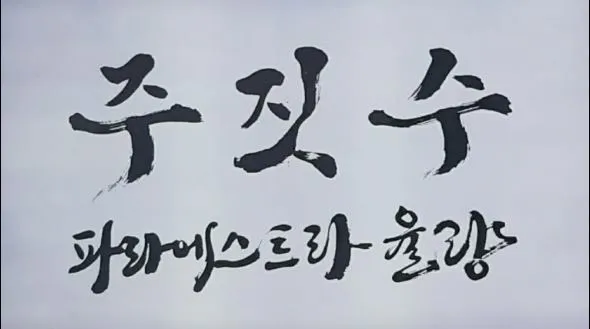 주짓수
파라에스트라 율량